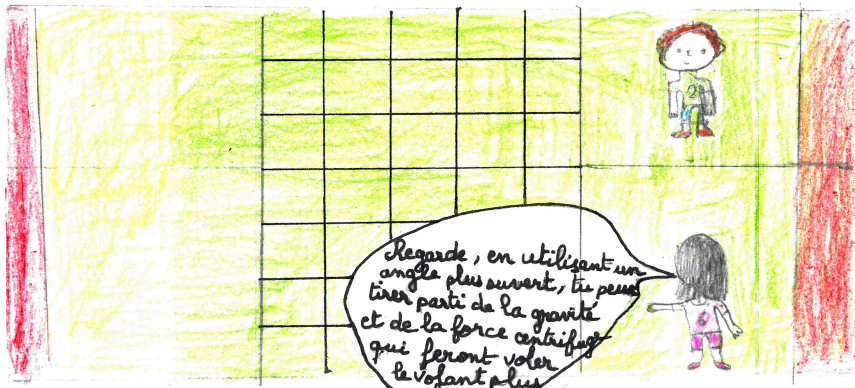 Regarde, en utilisant un
angle plus ouvert, tu peux
tirer parti de la gravité
et de la force centrifuge
qui feront voler
le volant plus
2